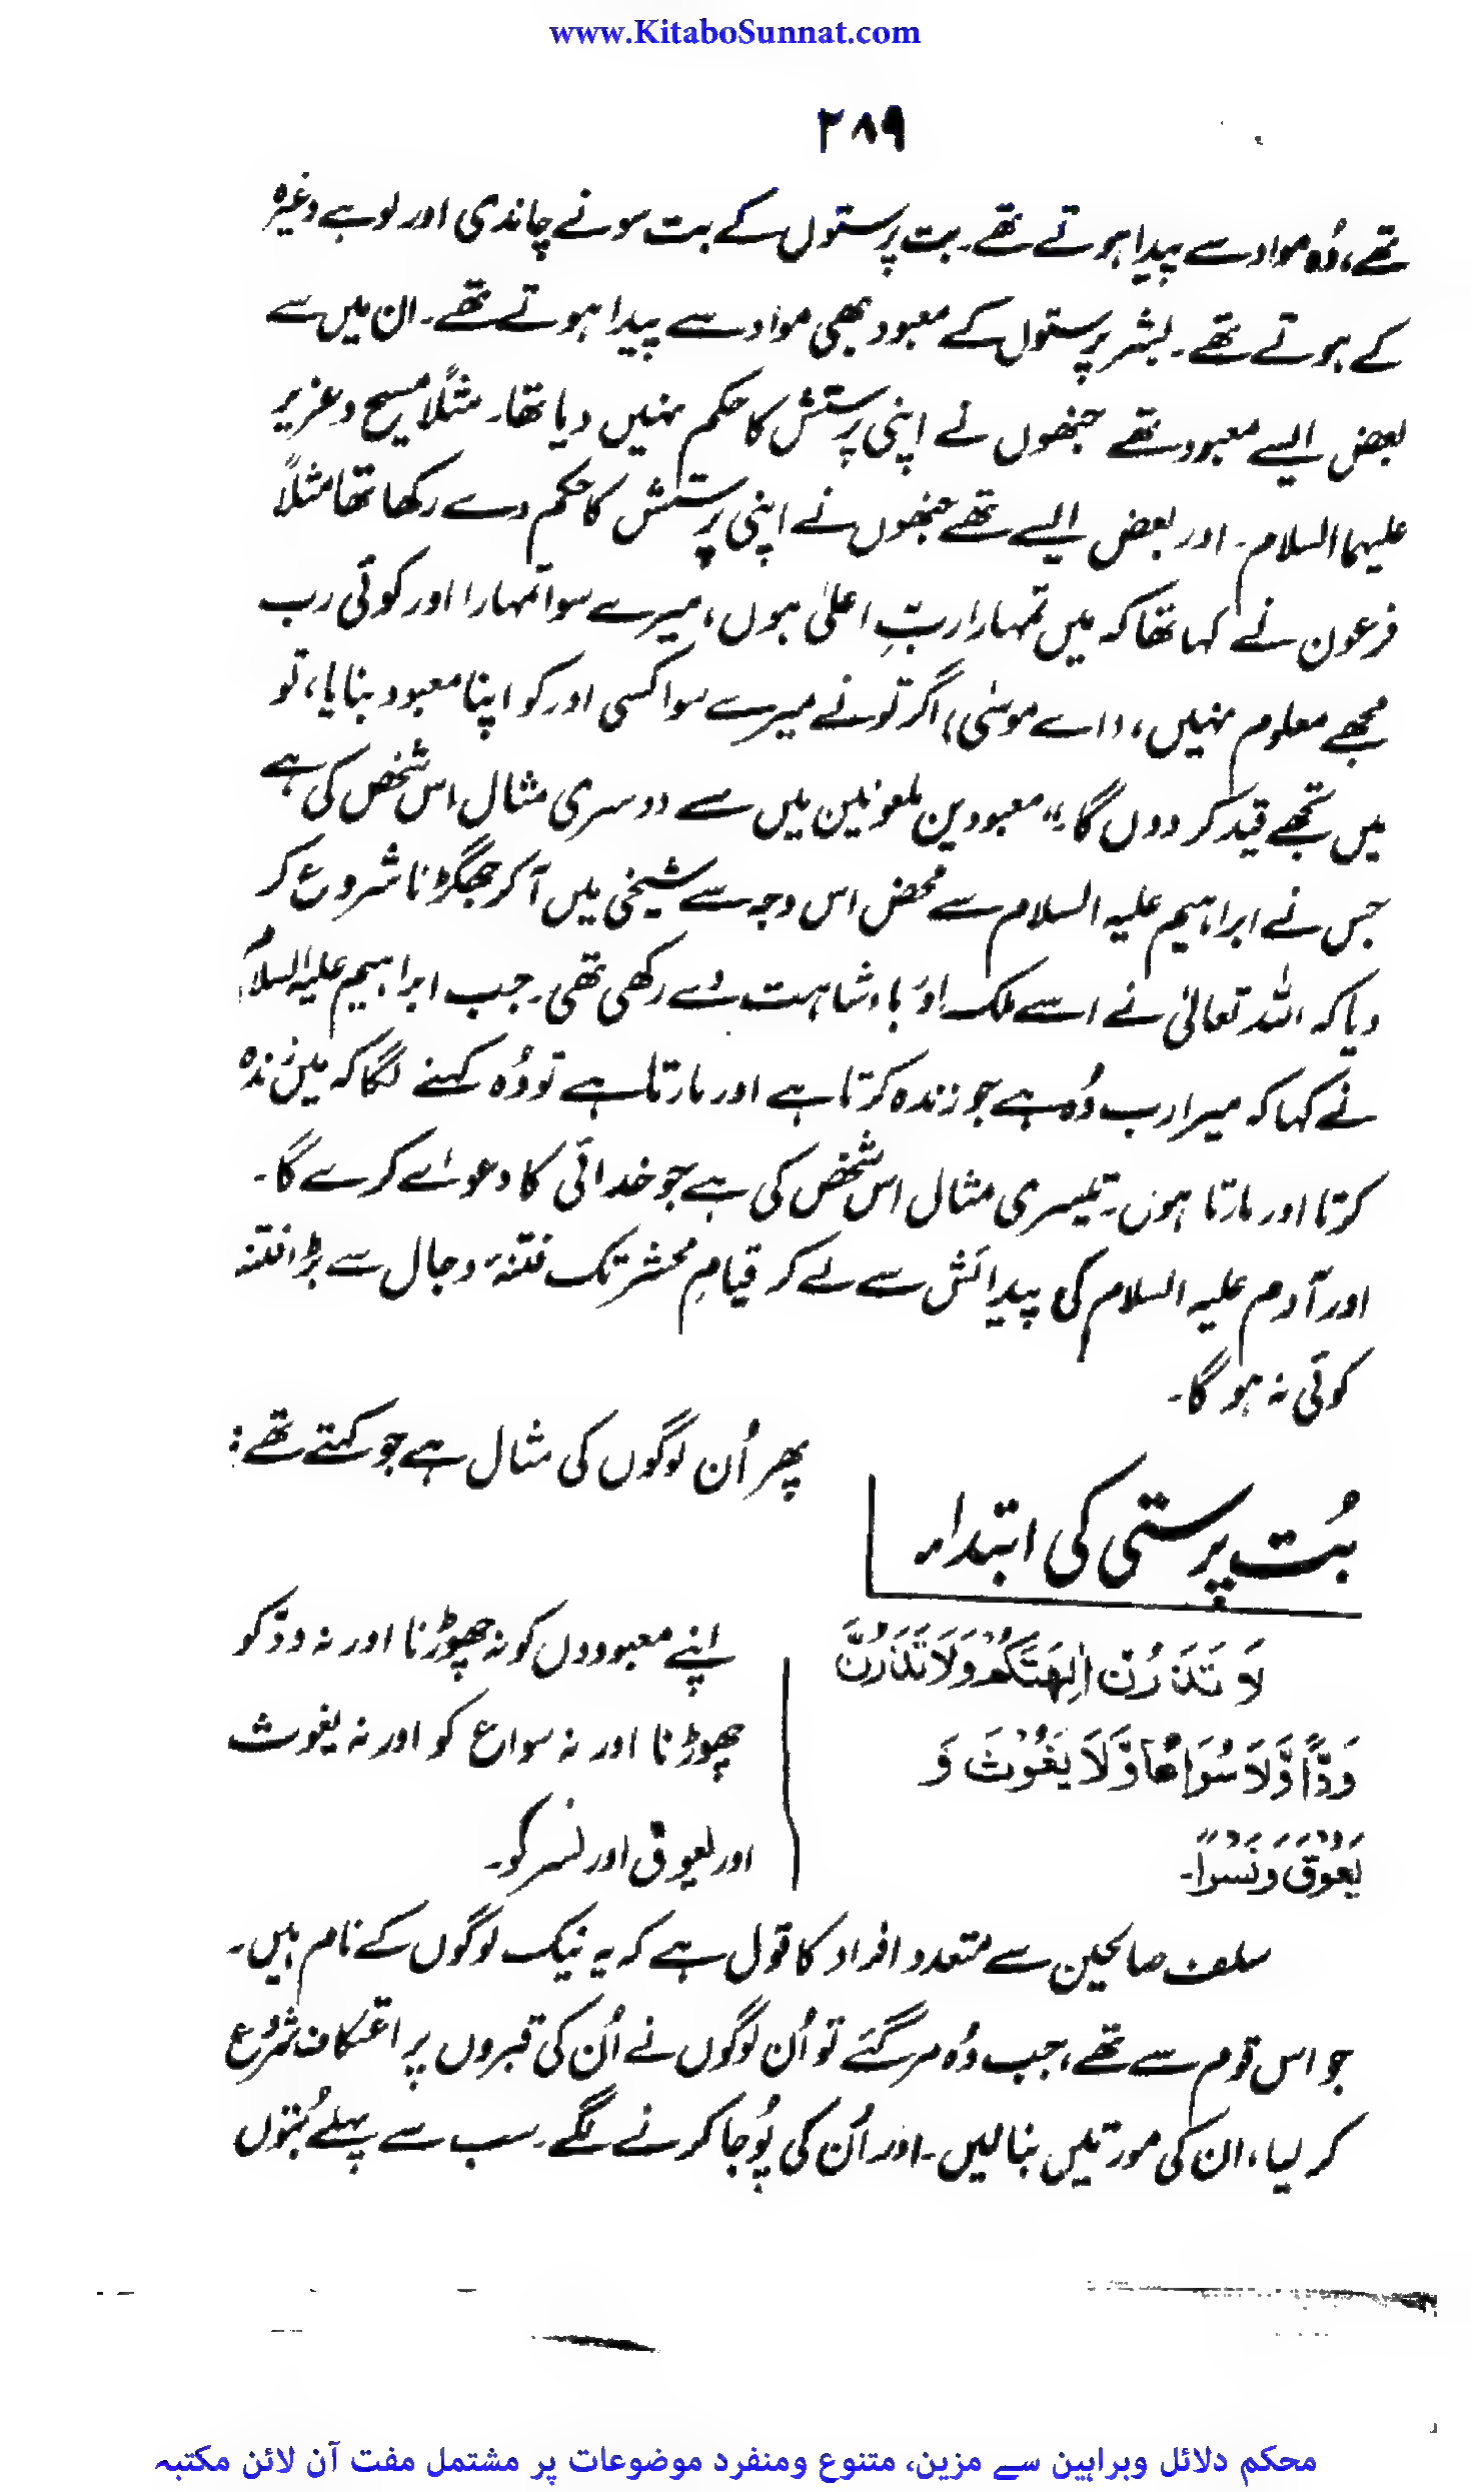 www.KitaboSunnat.com
۲۸۹
تھے، وُہ مواد سے پیدا ہوتے تھے۔ بت پرستوں کے بت سونے چاندی اور لوہے وغیرہ
کے ہوتے تھے۔ بشر پرستوں کے معبود بھی مواد سے پیدا ہوتے تھے۔ ان میں سے
بعض ایسے معبود تھے جنھوں نے اپنی پرستش کا حکم نہیں دیا تھا۔ مثلاً مسیح و عزیر
علیہما السلام۔ اور بعض ایسے تھے جنھوں نے اپنی پرستش کا حکم دے رکھا تھا مثلاً
فرعون نے کہا تھا کہ میں تمہارا ربِّ اعلیٰ ہوں، میرے سوا تمہارا اور کوئی رب
مجھے معلوم نہیں، (اے موسٰی) اگر تو نے میرے سوا کسی اور کو اپنا معبود بنایا، تو
میں تجھے قید کر دوں گا۔" معبودین ملعونین میں سے دوسری مثال اس شخص کی ہے
جس نے ابراہیم علیہ السلام سے محض اس وجہ سے شیخی میں آ کر جھگڑنا شروع کر
دیا کہ اللہ تعالیٰ نے اسے ملک اور بادشاہت دے رکھی تھی۔ جب ابراہیم علیہ السلام
نے کہا کہ میرا رب وُہ ہے جو زندہ کرتا ہے اور مارتا ہے تو وُہ کہنے لگا کہ میں زندہ
کرتا اور مارتا ہوں۔ تیسری مثال اس شخص کی ہے جو خدائی کا دعوےٰ کرے گا۔
اور آدم علیہ السلام کی پیدائش سے لے کر قیامِ محشر تک فتنۂ دجال سے بڑا فتنہ
کوئی نہ ہو گا۔
بُت پرستی کی ابتداء
پھر اُن لوگوں کی مثال ہے جو کہتے تھے:
لَا تَذَرُنَّ اٰلِهَتَكُمْ وَلَا تَذَرُنَّ
وَدًّا وَّلَا سُوَاعًا وَّلَا يَغُوْثَ وَ
يَعُوْقَ وَنَسْرًا۔
اپنے معبودوں کو نہ چھوڑنا اور نہ ودّ کو
چھوڑنا اور نہ سواع کو اور نہ یغوث
اور یعوق اور نسر کو۔
سلف صالحین سے متعدد افراد کا قول ہے کہ یہ نیک لوگوں کے نام ہیں۔
جو اس قوم سے تھے، جب وُہ مر گئے تو اُن لوگوں نے اُن کی قبروں پر اعتکاف شروع
کر لیا، ان کی مورتیں بنا لیں۔ اور اُن کی پُوجا کرنے لگے۔ سب سے پہلے بُتوں
محکم دلائل وبراہین سے مزین، متنوع ومنفرد موضوعات پر مشتمل مفت آن لائن مکتبہ